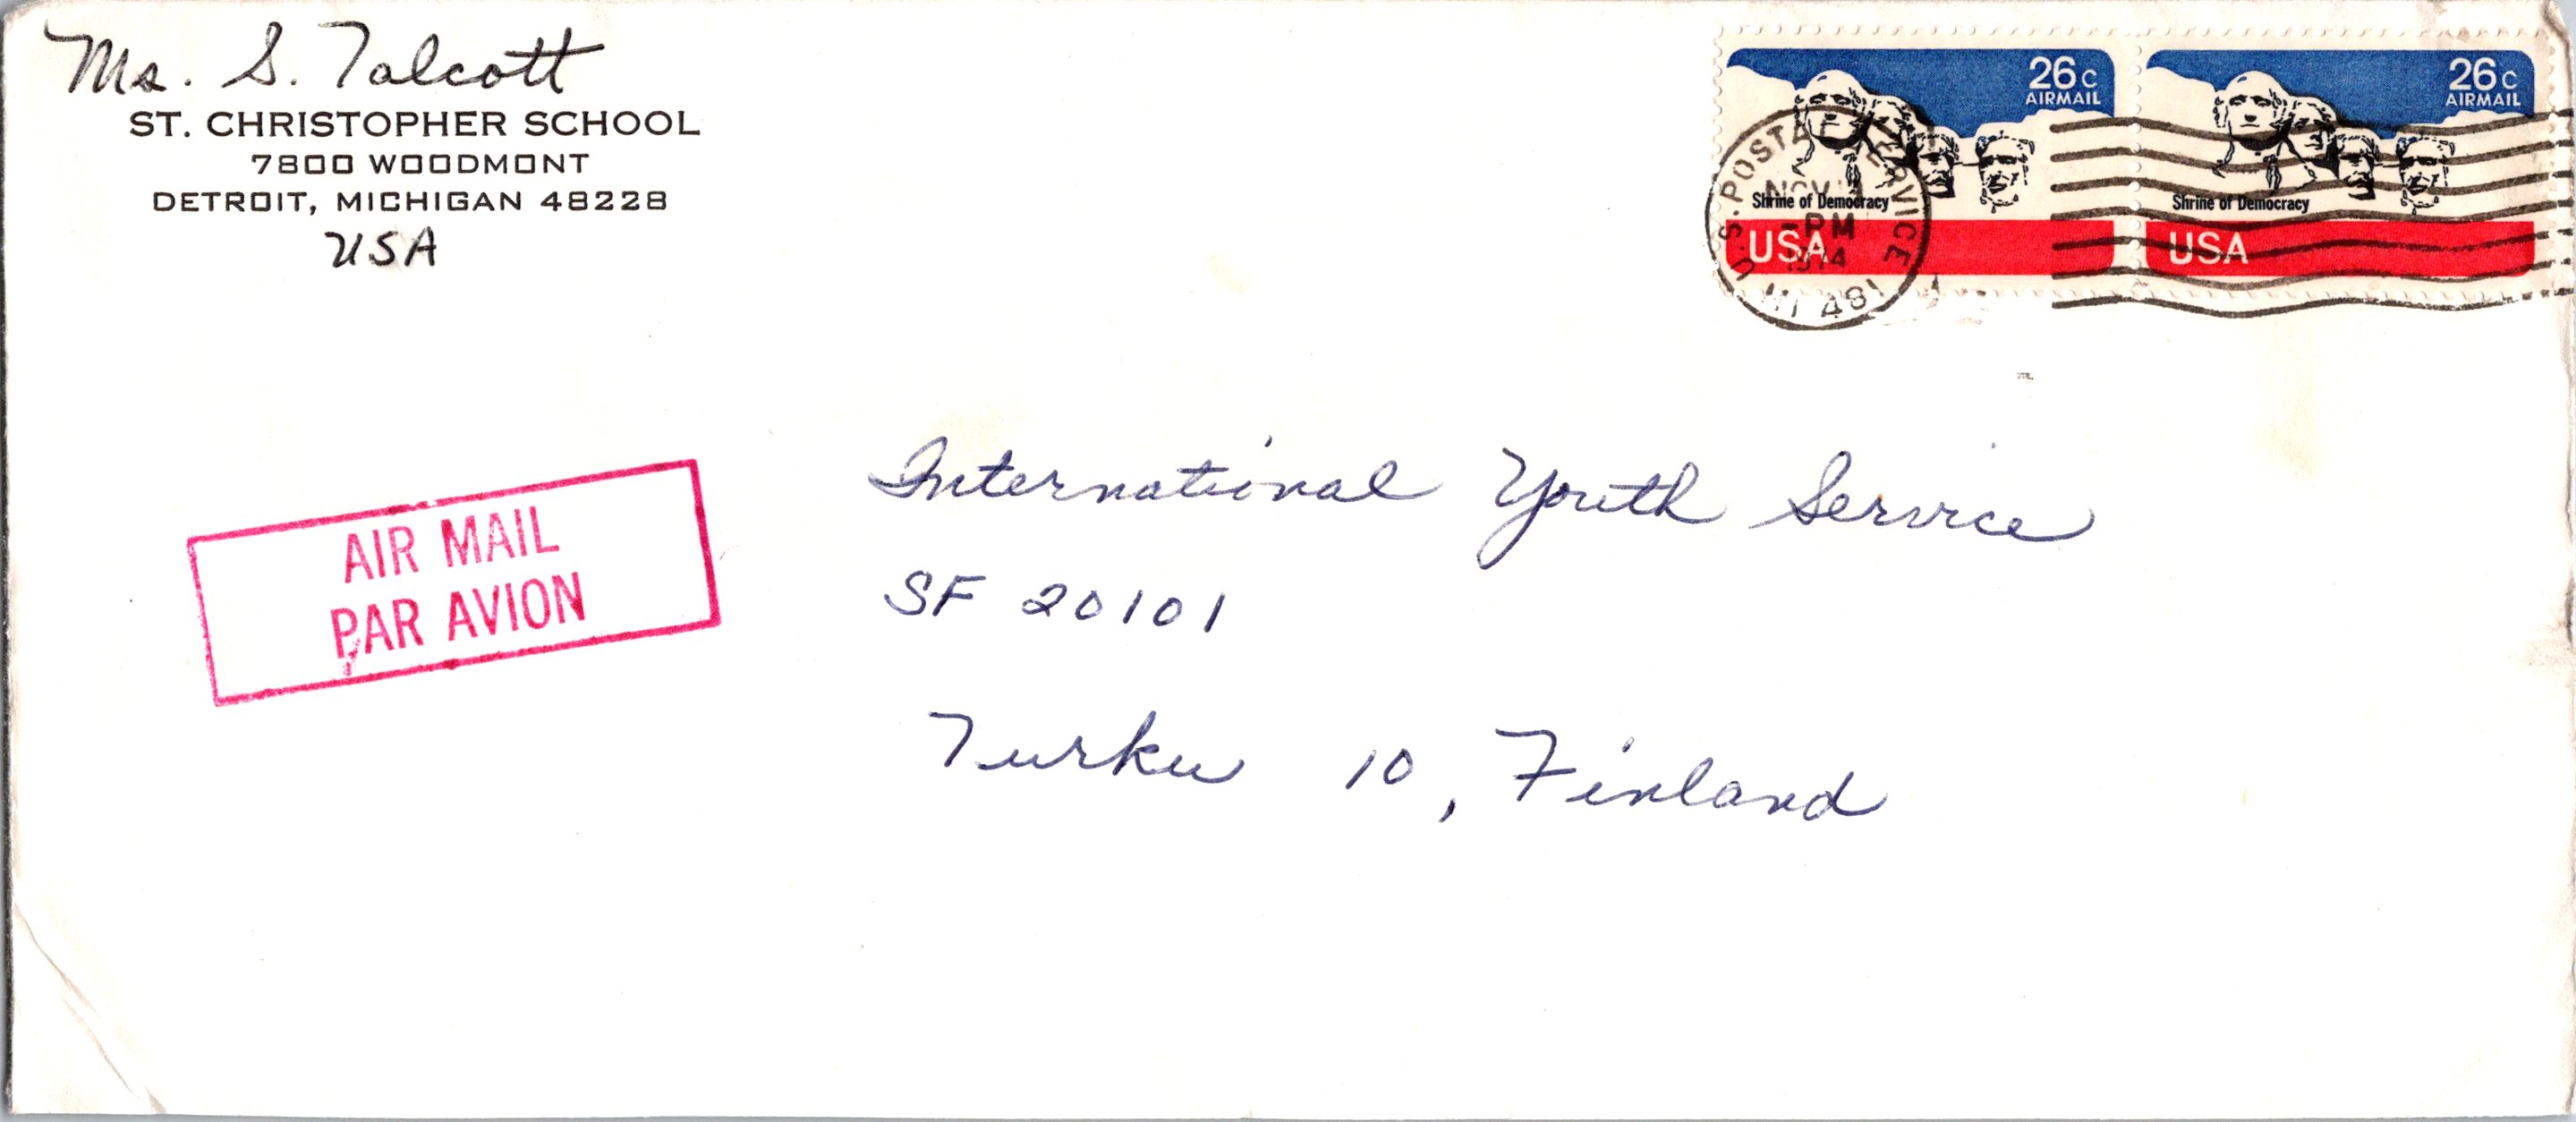 Ms. S. Talcott
ST. CHRISTOPHER SCHOOL
7800 WOODMONT
DETROIT, MICHIGAN 48228
USA
26c
AIRMAIL
Shrine of Democracy
USA
26c
AIRMAIL
Shrine of Democracy
USA
U.S. POSTAL SERVICE
NOV
PM
1974
MI 481
AIR MAIL
PAR AVION
International Youth Service
SF 20101
Turku 10, Finland